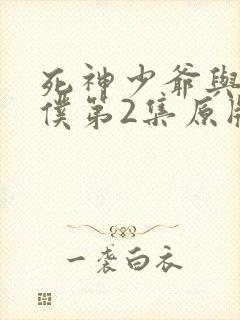 死神少爺與
僕第2集原
一袭白衣